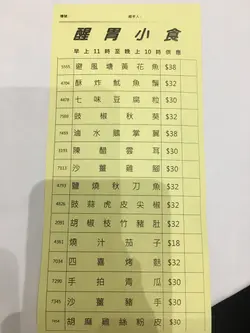 醒胃小食
早上11時至晚上10時供應
避風塘黃花魚 $38
4704 酥炸魷魚鬚 $32
七味豆腐粒 $30
豉椒葵 $32
滷水鵝掌翼 $38
陳醋雲耳 $30
7013 沙薑雞腳 $30
4793 鹽燒秋刀魚 $32
4826 豉蒜虎皮尖椒 $32
2091 胡椒枝竹豬肚 $32
4361 燒汁茄子 $18
7034 四喜烤麩 $32
7290 手拍青瓜 $30
7345 沙薑豬手 $30
胡麻雞絲粉皮 $30